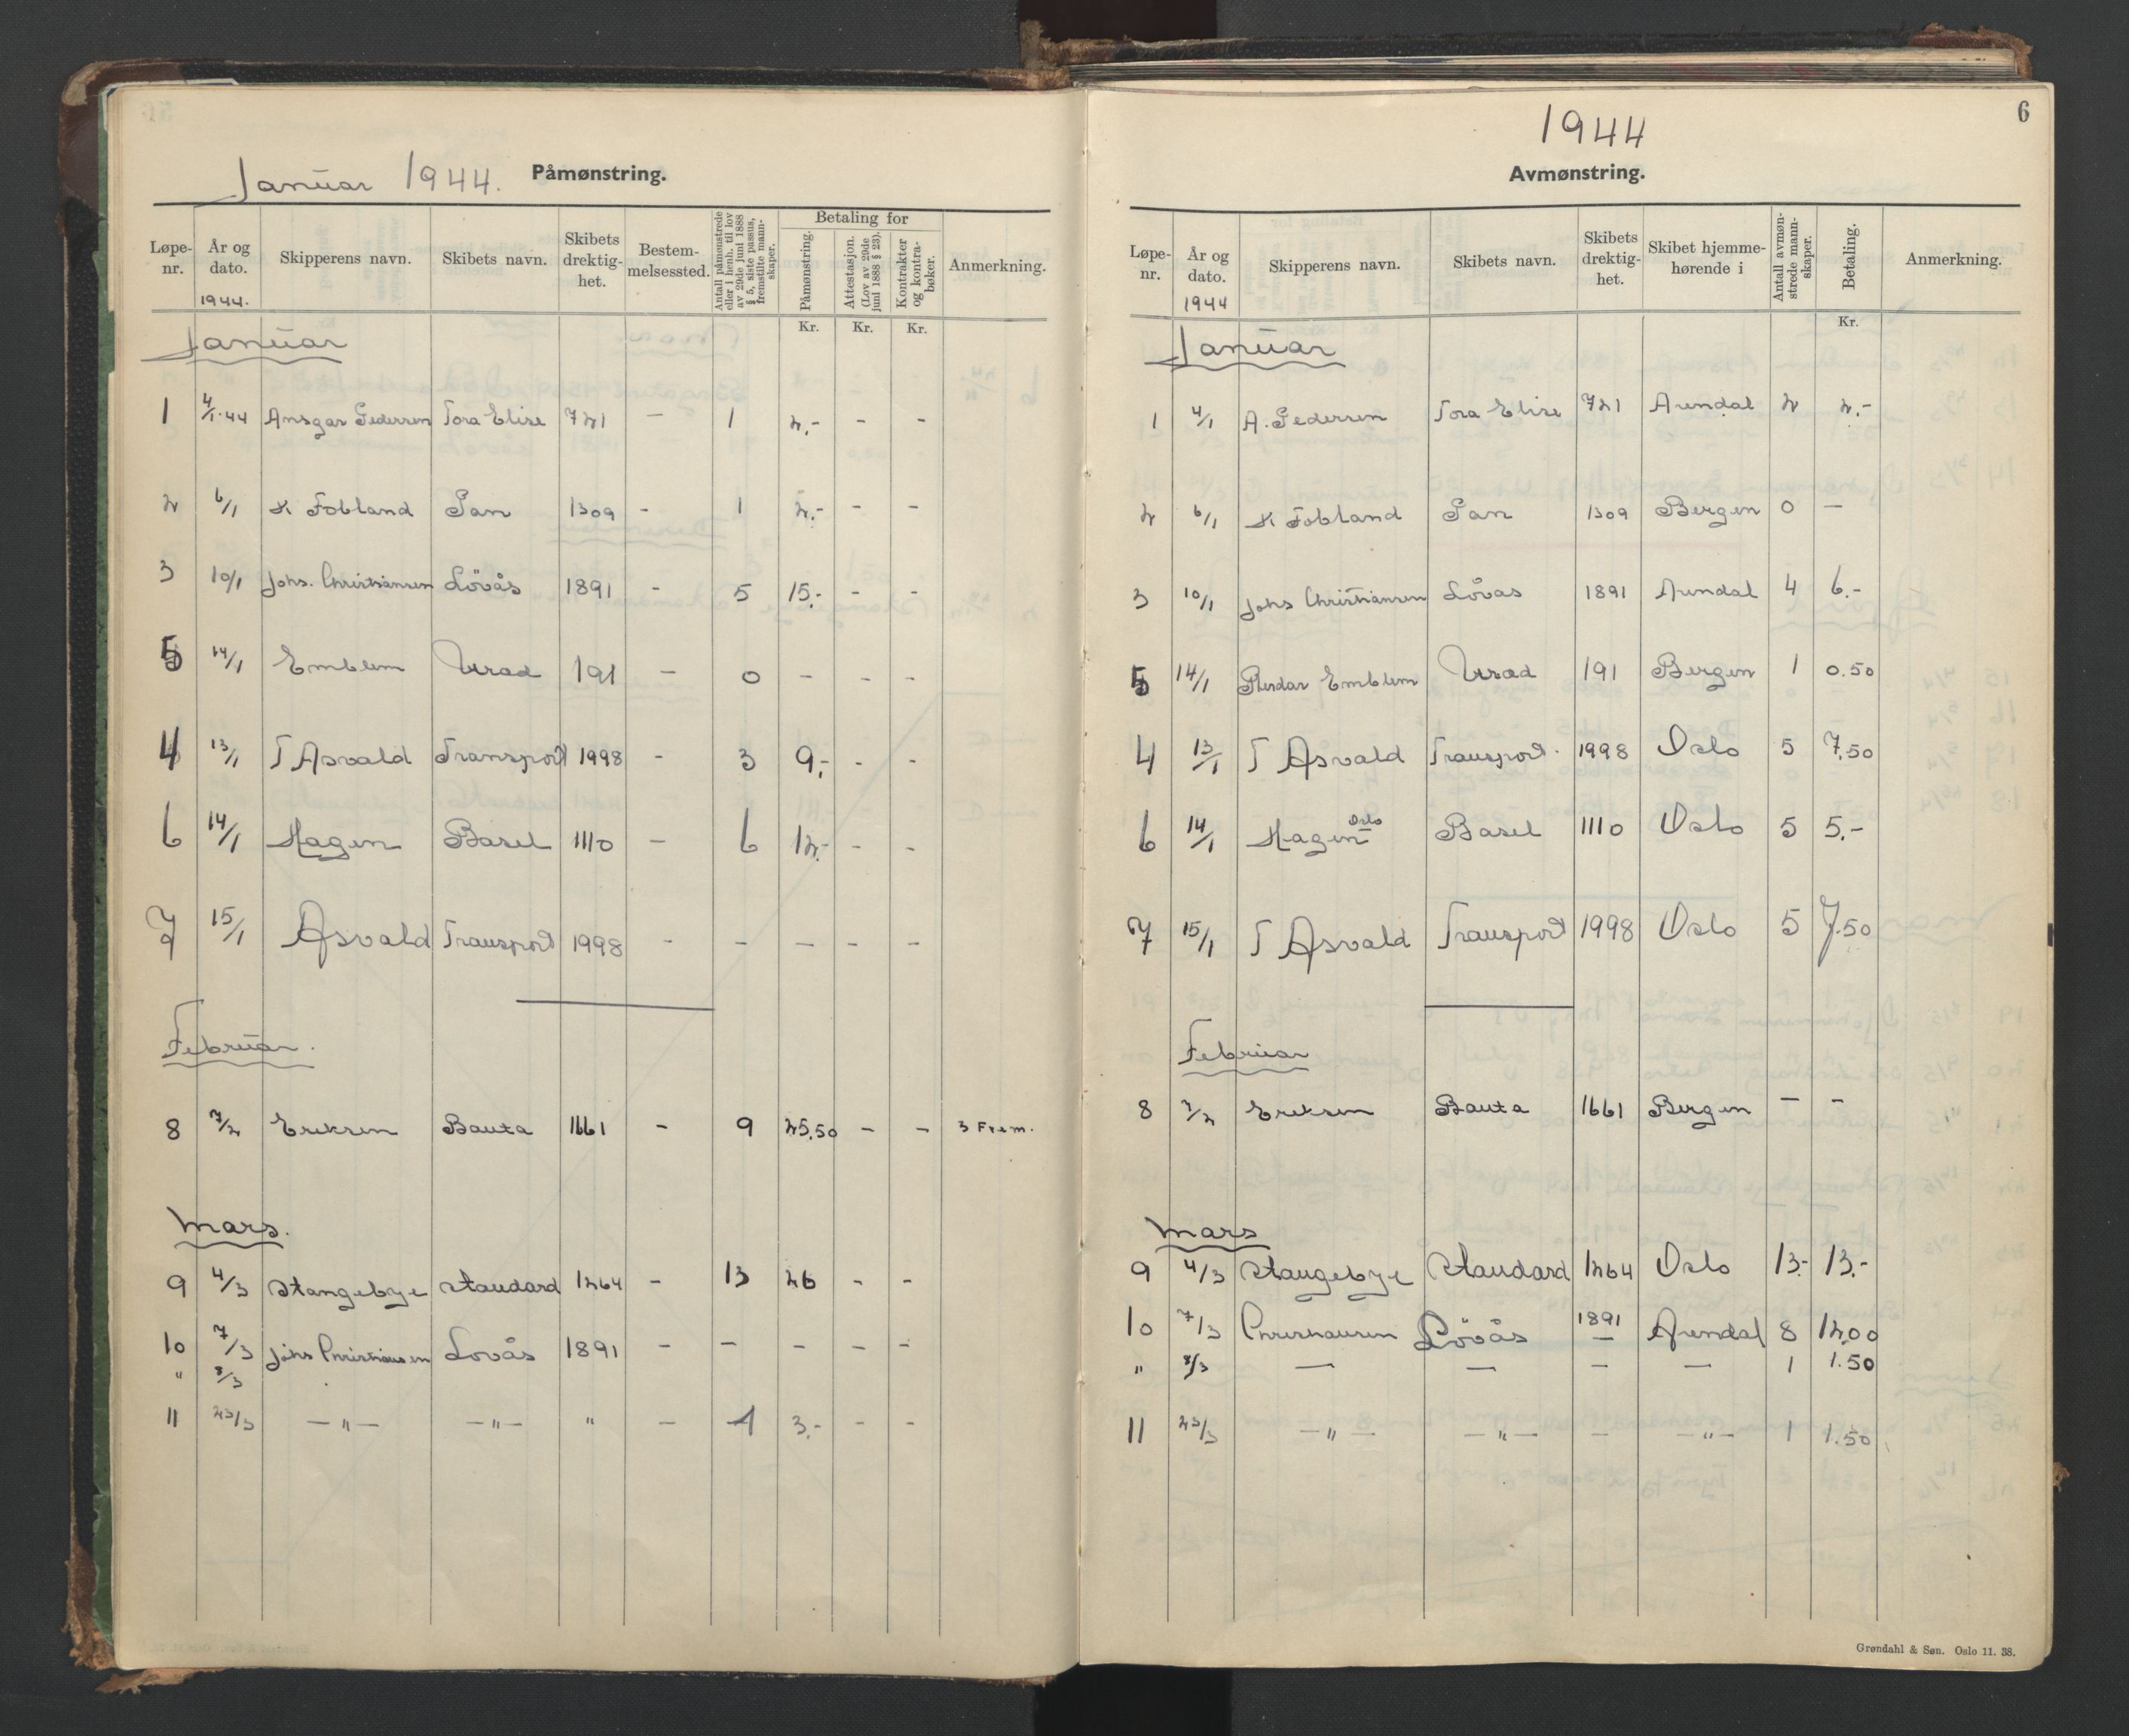 Januar 1944. Påmønstring.
Løpe-nr. År og dato. Skipperens navn. Skibets navn. Skibets drektig-het. Bestem-melsessted. Antall påmønstrede eller i henh. til lov av 29de juni 1888 § 5, siste passus, fremstilte mann-skaper. Betaling for Påmønstring. Attestasjon. (Lov av 29de juni 1888 § 23). Kontrakter og kontra-bøker. Anmerkning.
1944.
Kr. Kr. Kr.
Januar
1 4/1.44 Ansgar Pedersen Tora Elise 721 — 1 2.- - -
2 6/1 K Fobland San 1309 - 1 2.- - -
3 10/1 Johs. Christiansen Lövås 1891 - 5 15.- - -
5 14/1 Emblem Urad 191 - 0 - - -
4 13/1 T Asvald Transport 1998 - 3 9.- - -
6 14/1 Hagen Basel 1110 - 6 12.- - -
7 15/1 Asvald Transport 1998 - - - - -
Februar.
8 7/2 Eriksen Bauta 1661 - 9 25.50 - - 3 Frem.
Mars.
9 4/3 Stangebye Standard 1264 - 13 26 - -
10 7/3 Johs Christiansen Lovås 1891 - - - - -
" 8/3
11 23/3 —"— —"— " - 1 3.- - -
1944
6
Avmønstring.
Løpe-nr. År og dato. Skipperens navn. Skibets navn. Skibets drektig-het. Skibet hjemme-hørende i Antall avmøn-strede mann-skaper. Betaling. Anmerkning.
1944
Kr.
Januar
1 4/1 A. Pedersen Tora Elise 721 Arendal 2 2.-
2 6/1 K Fobland San 1309 Bergen 0 —
3 10/1 Johs Christiansen Lövas 1891 Arendal 4 6.-
5 14/1 Emblem Urad 191 Bergen 1 0.50
4 13/1 T Asvald Transport. 1998 Oslo 5 7.50
6 14/1 Hagen Oslo Basel 1110 Oslo 5 5.-
7 15/1 T Asvald Transport 1998 Oslo 5 7.50
Februar
8 7/2 Eriksen Bauta 1661 Bergen - -
Mars
9 4/3 Stangebye Standard 1264 Oslo 13.- 13.-
10 7/3 Christiansen Lövås 1891 — Arendal 8 12.00
" 8/3 — — — — 1 1.50
11 23/3 —"— —"— — —"— 1 1.50
Grøndahl & Søn. Oslo 11. 38.